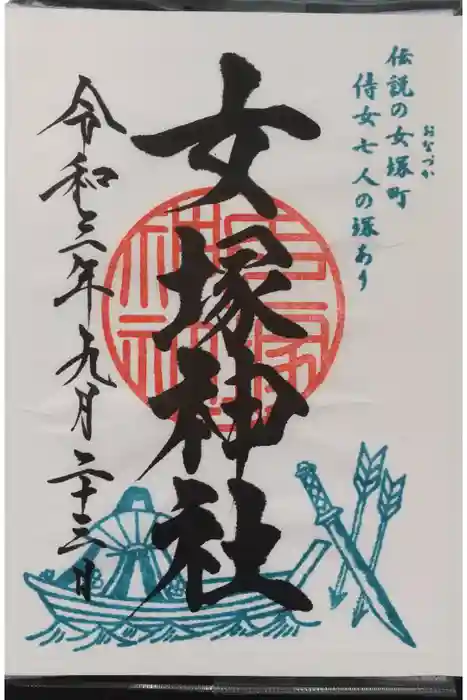 伝説の女塚町
おなづか
侍女七人の塚あり
女塚神社
女塚神社
令和三年九月二十三日